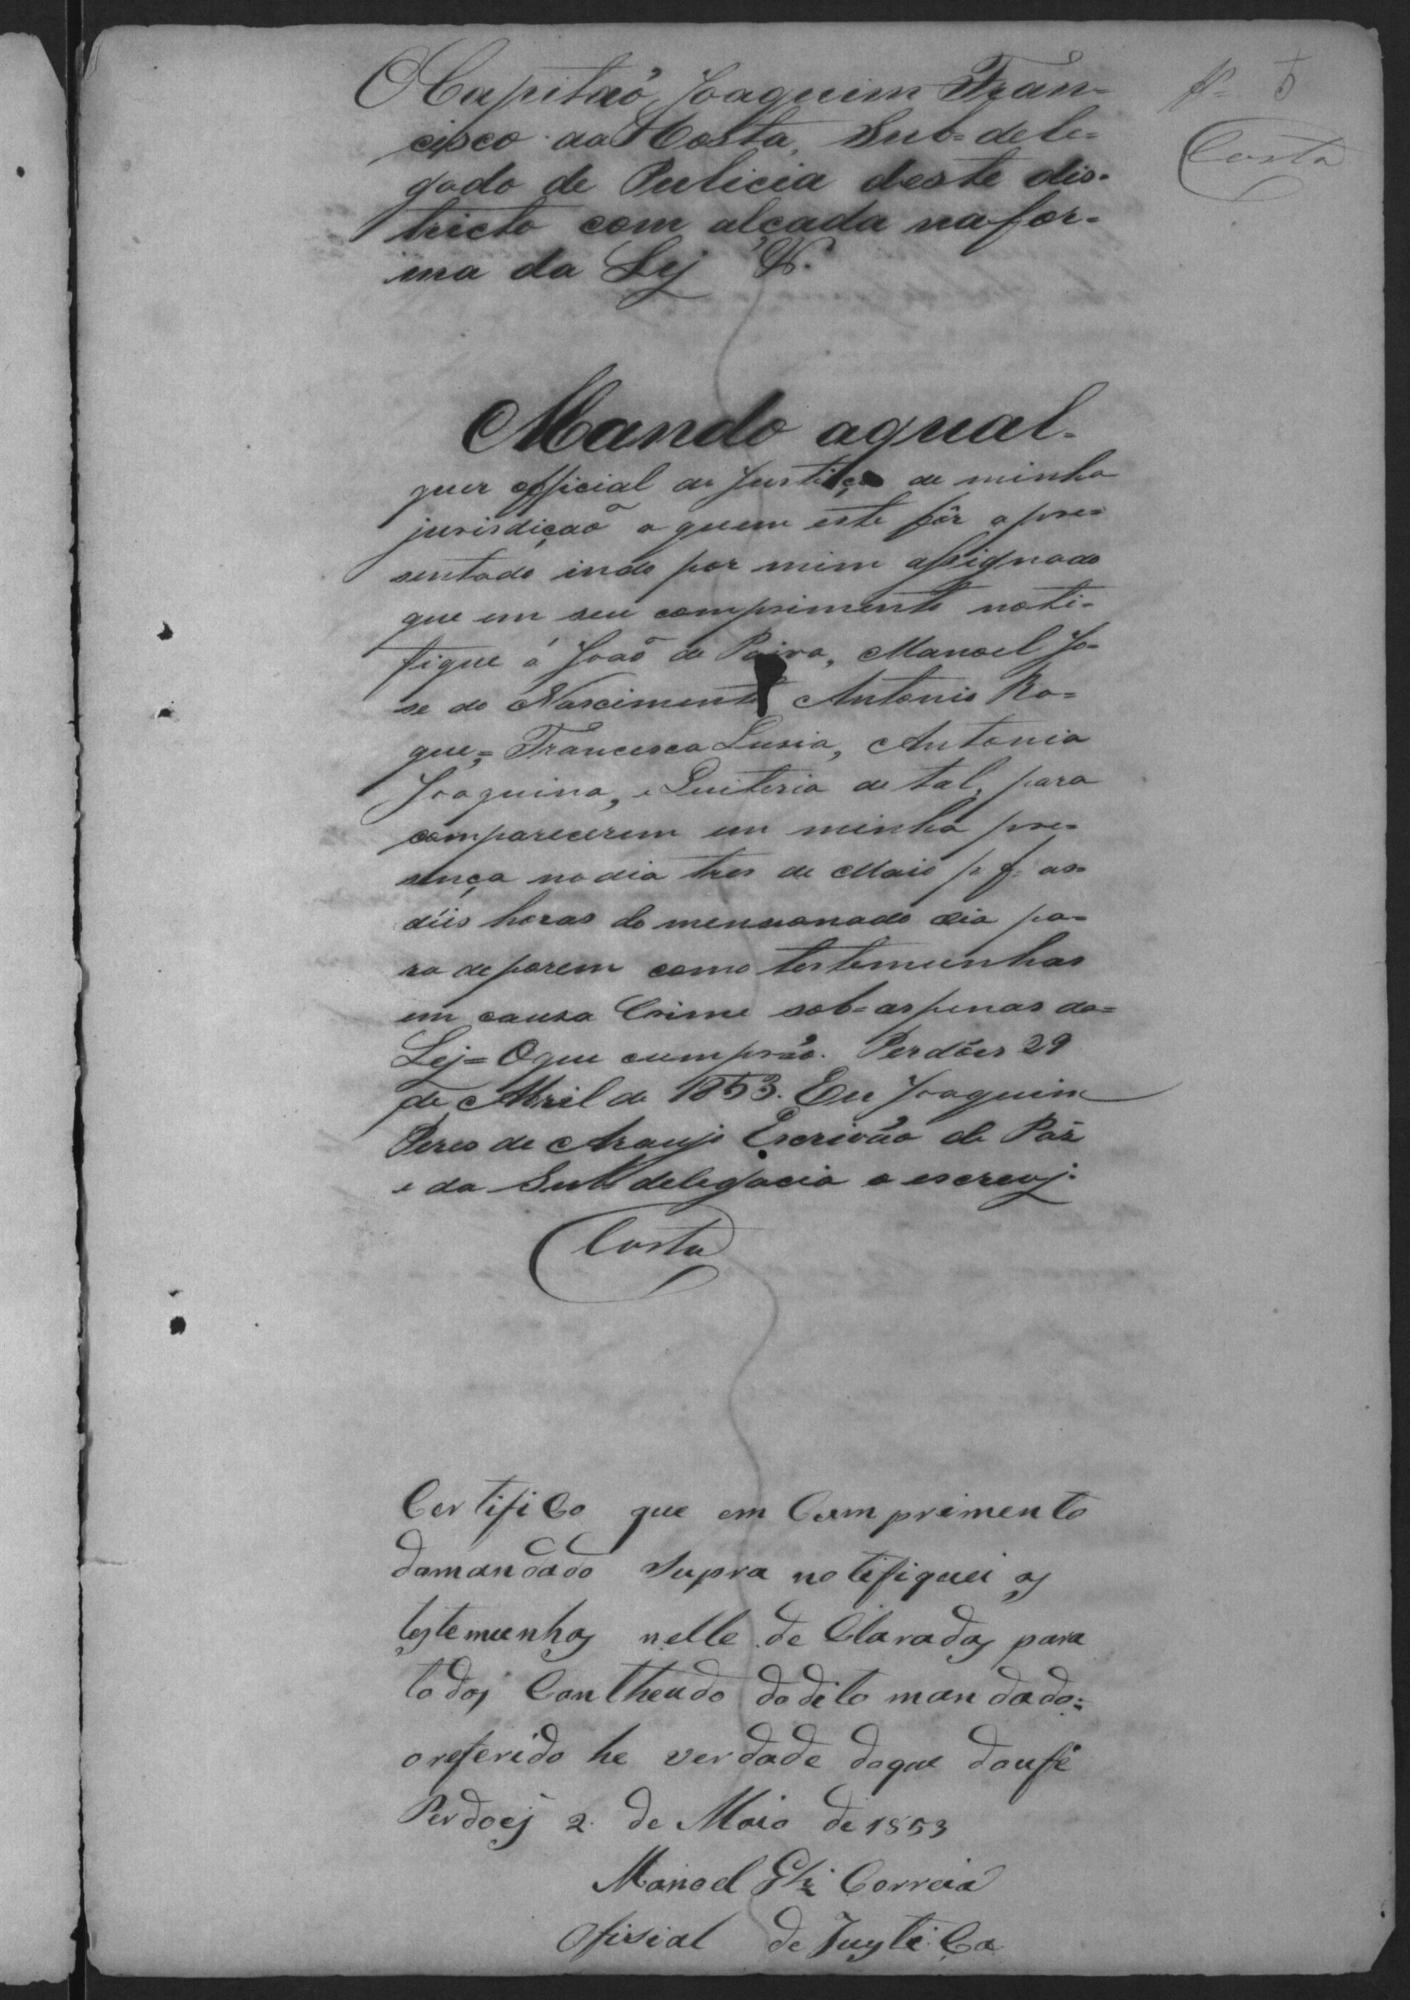 O Capitaõ Joaquim Fran-
cisco da Costa, Sub=dele=
gado de Pulicia deste dis-
tricto com alçada na for-
ma da Lej &.
fl- 5
Costa
Mando aqual-
quer official de Justiça de minha
jurisdiçaõ a quem este fôr a pre=
sentado indo por mim assignado
que em seu comprimento noti-
fique á Joaõ de Paiva, Manoel Jo-
se do Nascimento Antonio Ro=
que, Francisca Lusia, Antonia
Joaquina, e Quiteria de tal, para
comparecerem em minha pre=
sença no dia tres de Maio p f. as
horas do mencionado dia pa=
ra deporem como testemunhas
em causa Crime sob=as penas da=
Lej= O que cumpraõ. Perdões 29
de Abril de 1853. Eu Joaquim
Peres de Araujo Escrivão de Pâz
e da Sub delegacia o escrevj.
Costa
Certifico que em Comprimento
domandado Supra notefiquei as
testemunhas nelle de Claradas para
todos Contheudo do dito mandado=
oreferido he verdade do que doufé
Perdoes 2. de Maio de 1853
Manoel Glz Correia
Ofisial de Justica